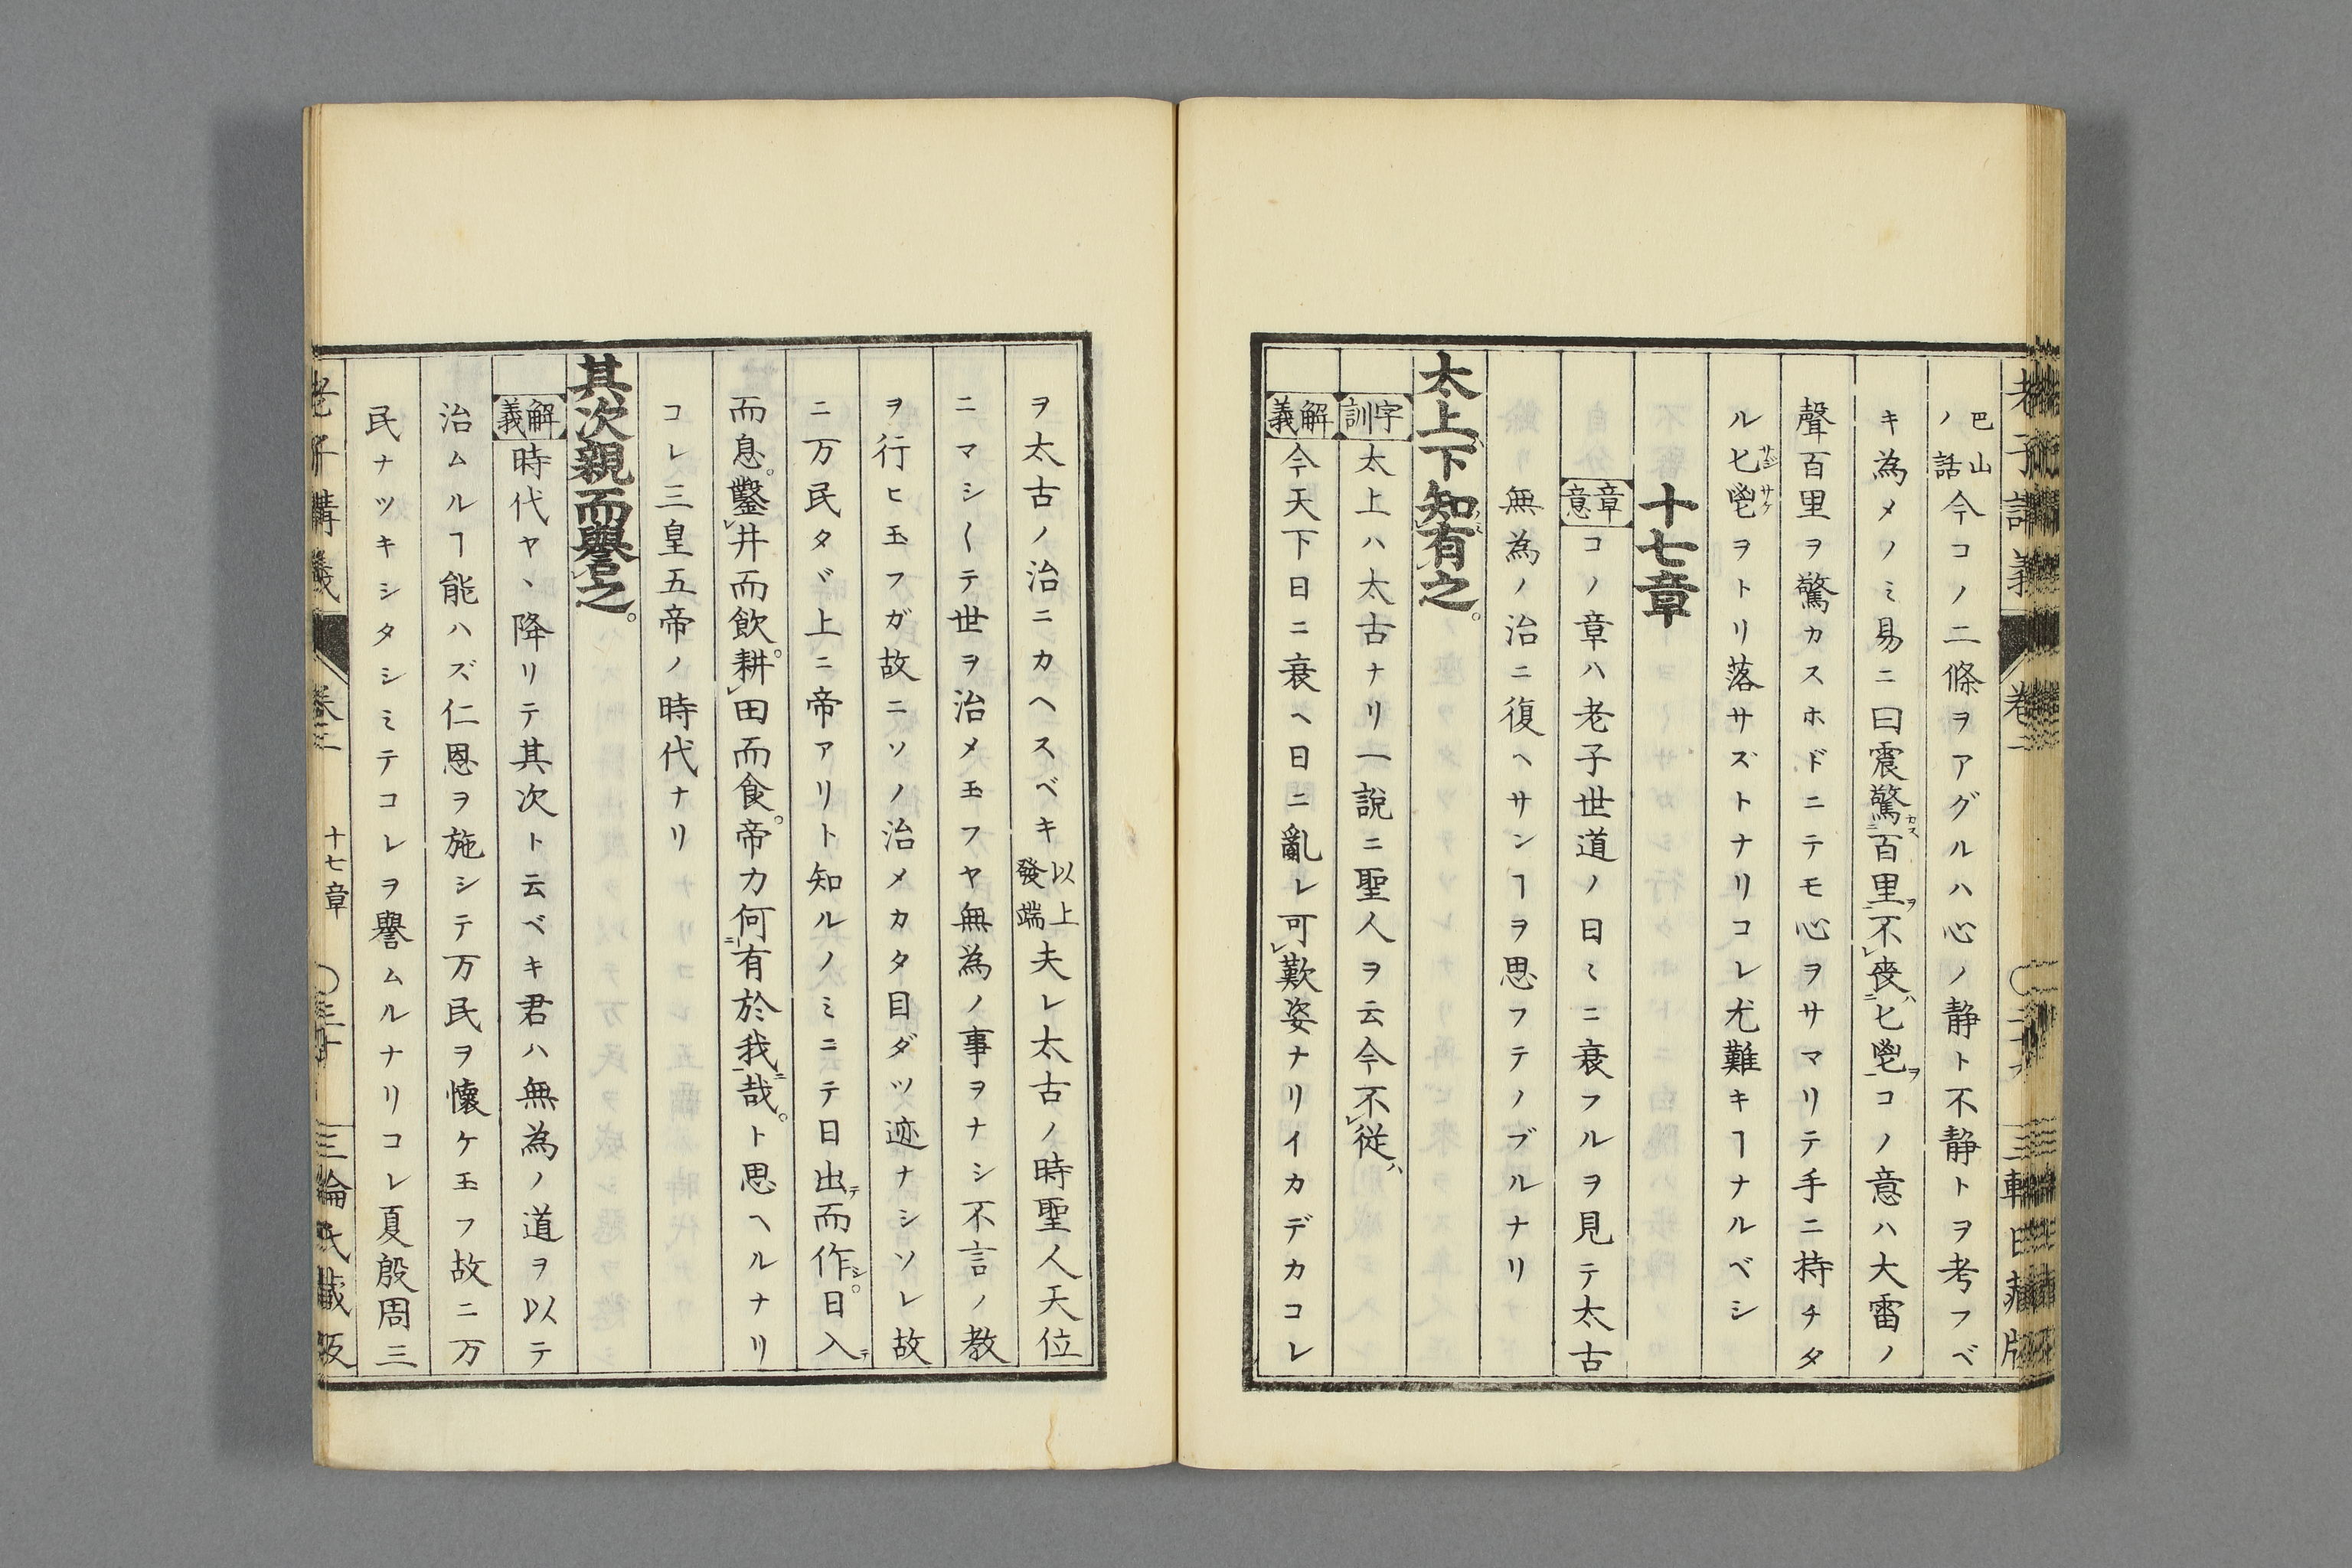 巴山ノ話今コノ二條ヲアグルハ心ノ静ト不静トヲ考フベ
キ為メノミ易ニ曰震驚カス百里ヲ不レ喪ハ匕鬯ヲコノ意ハ大雷ノ
聲百里ヲ驚カスホドニテモ心ヲサマリテ手ニ持チタ
ル匕サジ鬯サケヲトリ落サズトナリコレ尤難キヿナルベシ
十七章
章意コノ章ハ老子世道ノ日ミニ衰フルヲ見テ太古
無為ノ治ニ復ヘサンヿヲ思フテノブルナリ
太上下知有之。
字訓太上ハ太古ナリ一說ニ聖人ヲ云今不レ従ハ
解義今天下日ニ衰ヘ日ニ亂レ可レ歎姿ナリイカデカコレ
ヲ太古ノ治ニカヘスベキ以上發端夫レ太古ノ時聖人天位
ニマシ〱テ世ヲ治メ玉フヤ無為ノ事ヲナシ不言ノ教
ヲ行ヒ玉フガ故ニソノ治メカタ目ダツ迹ナシソレ故
ニ万民タヾ上ニ帝アリト知ルノミニテ日出テ而作シ。日入テ
而息。鑿レ井而飲。耕レ田而食。帝力何有於我哉。ト思ヘルナリ
コレ三皇五帝ノ時代ナリ
其次親而譽之。
解義時代ヤヽ降リテ其次ト云ベキ君ハ無為ノ道ヲ以テ
治ムルヿ能ハズ仁恩ヲ施シテ万民ヲ懐ケ玉フ故ニ万
民ナツキシタシミテコレヲ譽ムルナリコレ夏殷周三
老子講義 卷二 十七章 三輪氏藏版